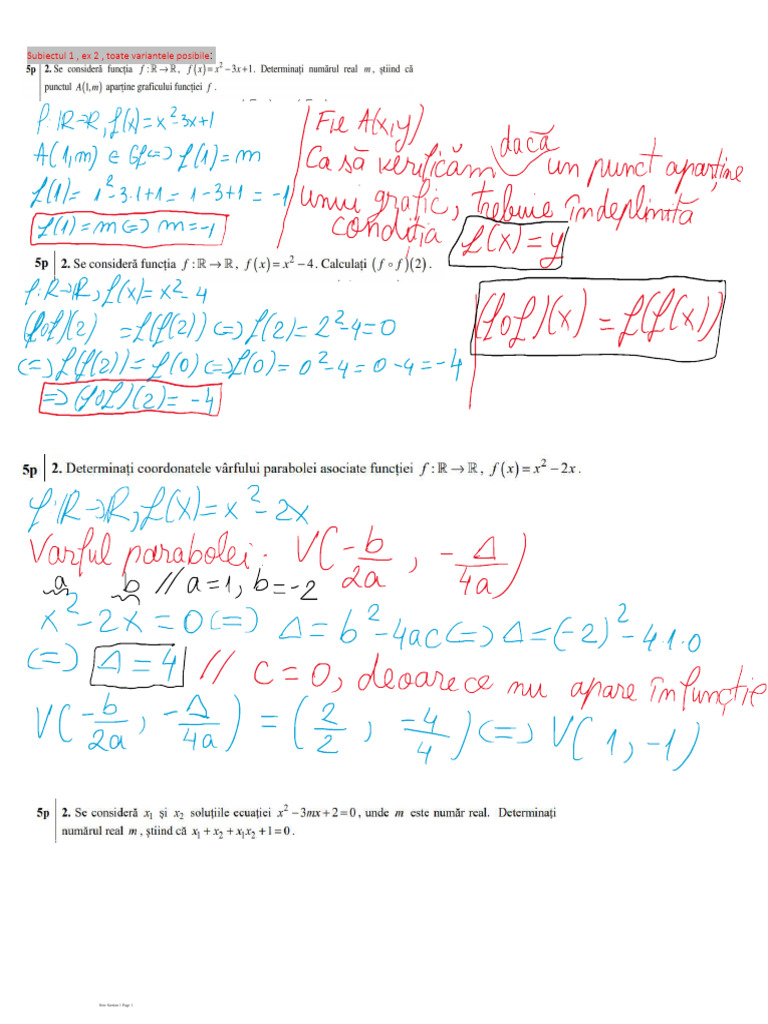 Subiectul 1 , ex 2 , toate variantele posibile:
5p 2. Se consideră funcția f : ℝ → ℝ , f(x) = x² − 3x + 1. Determinați numărul real m , știind că
punctul A(1,m) aparține graficului funcției f .
f: ℝ→ℝ, f(x)=x²-3x+1
A(1,m) ∈ Gf <=> f(1)=m
f(1)=1²-3·1+1=1-3+1=-1
f(1)=m <=> m=-1
Fie A(x,y)
Ca să verificăm dacă un punct aparține
unui grafic, trebuie îndeplinită
condiția f(x)=y
5p 2. Se consideră funcția f : ℝ → ℝ , f(x) = x² − 4. Calculați (f ∘ f)(2) .
f: ℝ→ℝ, f(x)=x²-4
(fof)(2) =f(f(2)) <=> f(2)=2²-4=0
<=> f(f(2))=f(0) <=> f(0)=0²-4=0-4=-4
=> (fof)(2)=-4
(fof)(x)=f(f(x))
5p 2. Determinați coordonatele vârfului parabolei asociate funcției f : ℝ → ℝ , f(x) = x² − 2x .
f: ℝ→ℝ, f(x)=x²-2x
Varful parabolei: V(-b/2a, -Δ/4a)
a b // a=1, b=-2
x²-2x=0 <=> Δ=b²-4ac <=> Δ=(-2)²-4·1·0
<=> Δ=4 // c=0, deoarece nu apare în funcție
V(-b/2a, -Δ/4a) = (2/2, -4/4) <=> V(1,-1)
5p 2. Se consideră x₁ și x₂ soluțiile ecuației x² − 3mx + 2 = 0 , unde m este număr real. Determinați
numărul real m , știind că x₁ + x₂ + x₁x₂ + 1 = 0 .